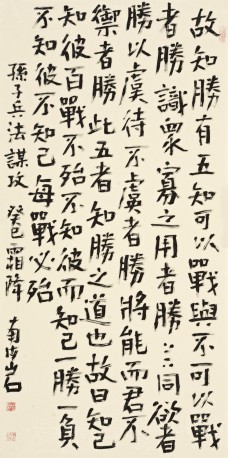 故知勝有五知可以戰與不可以戰
者勝識衆寡之用者勝上下同欲者
勝以虞待不虞者勝將能而君不
禦者勝此五者知勝之道也故曰知己
知彼百戰不殆不知彼而知己一勝一負
不知彼不知己每戰必殆
孫子兵法謀攻 癸巳霜降